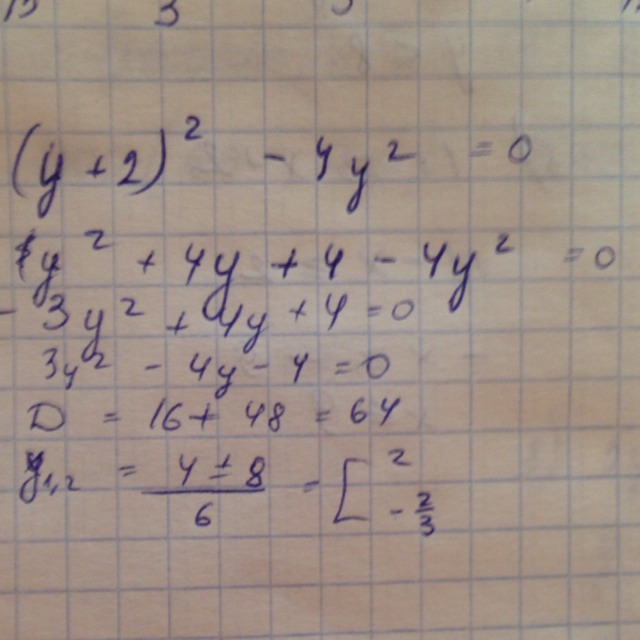 (y + 2)² - 4y² = 0
y² + 4y + 4 - 4y² = 0
- 3y² + 4y + 4 = 0
3y² - 4y - 4 = 0
D = 16 + 48 = 64
y₁,₂ = (4 ± 8)/6 = [ 2
- 2/3